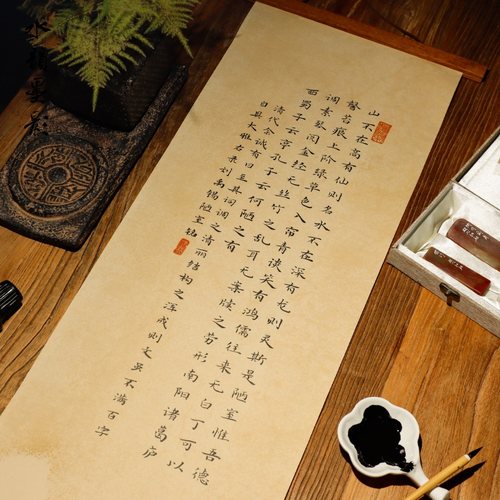 山不在高有仙则名水不在深有龙则灵斯是陋室惟吾德
馨苔痕上阶绿草色入帘青谈笑有鸿儒往来无白丁可以
调素琴阅金经无丝竹之乱耳无案牍之劳形南阳诸葛庐
西蜀子云亭孔子云何陋之有
清代余诚有曰其词调之清丽结构之浑成则文虽不满百字
自具大雅右录刘禹锡陋室铭